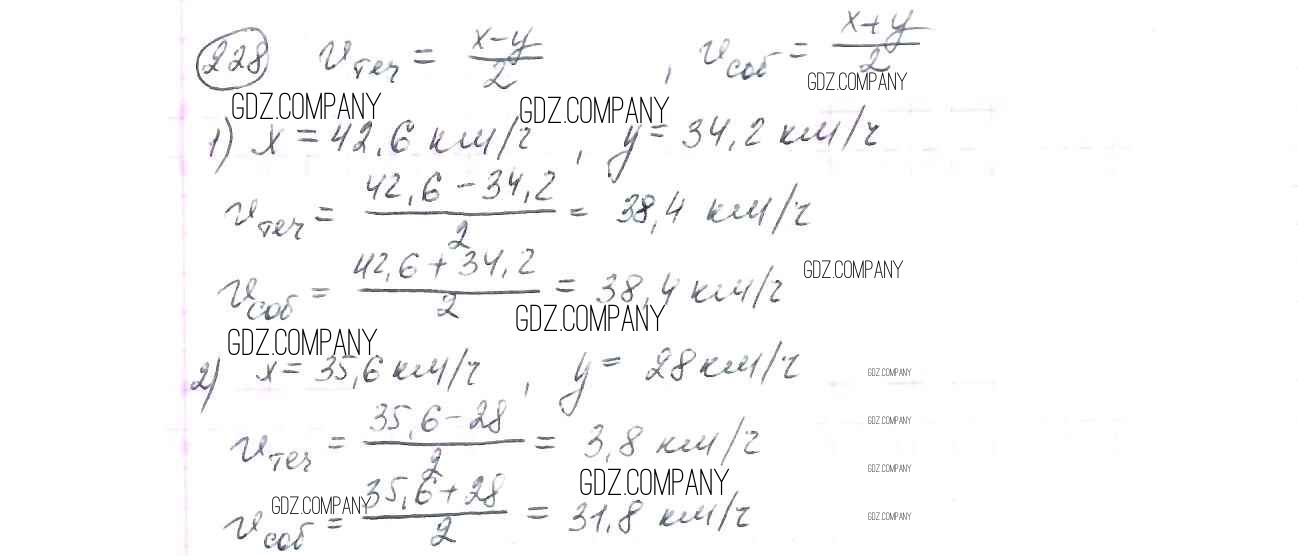 228 v теч = x-y/2 , v соб = x+y/2
GDZ.COMPANY
GDZ.COMPANY GDZ.COMPANY
1) x = 42,6 км/ч , y = 34,2 км/ч
v теч = 42,6-34,2/2 = 38,4 км/ч
v соб = 42,6+34,2/2 = 38,4 км/ч
GDZ.COMPANY
GDZ.COMPANY
GDZ.COMPANY
2) x = 35,6 км/ч , y = 28 км/ч
GDZ.COMPANY
GDZ.COMPANY
v теч = 35,6-28/2 = 3,8 км/ч
GDZ.COMPANY
GDZ.COMPANY
GDZ.COMPANY
v соб = 35,6+28/2 = 31,8 км/ч
GDZ.COMPANY